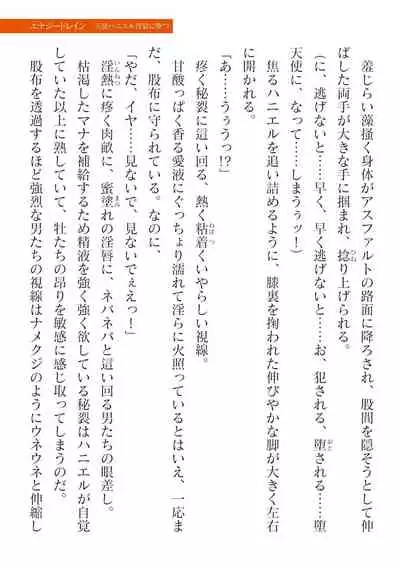 エナジードレイン 天使ハニエル
羞じらい藻掻く身体がアスファルトの路面に降ろされ、股間を隠そうとして伸
ばした両手が大きな手に掴まれ、捻り上げられる。
(に、逃げないと……早く、早く逃げないと……お、犯される、堕される……堕
天使に、なって……しまうぅッ！)
焦るハニエルを追い詰めるように、膝裏を掬われた伸びやかな脚が大きく左右
に開かれる。
「あ……うぅうっ!?」
疼く秘裂に這い回る、熱く粘着くいやらしい視線。
甘酸っぱく香る愛液にぐっちょり濡れて淫らに火照っているとはいえ、一応ま
だ、股布に守られている。なのに、
「やだ、イヤ……見ないで、見ないでぇえっ！」
淫熱に疼く肉畝に、蜜塗れの淫唇に、ネバネバと這い回る男たちの眼差し。
枯渇したマナを補給するため精液を強く強く欲している秘裂はハニエルが自覚
していた以上に熟していて、牡たちの昂りを敏感に感じ取ってしまうのだ。
股布を透過するほど強烈な男たちの視線はナメクジのようにウネウネと伸縮し